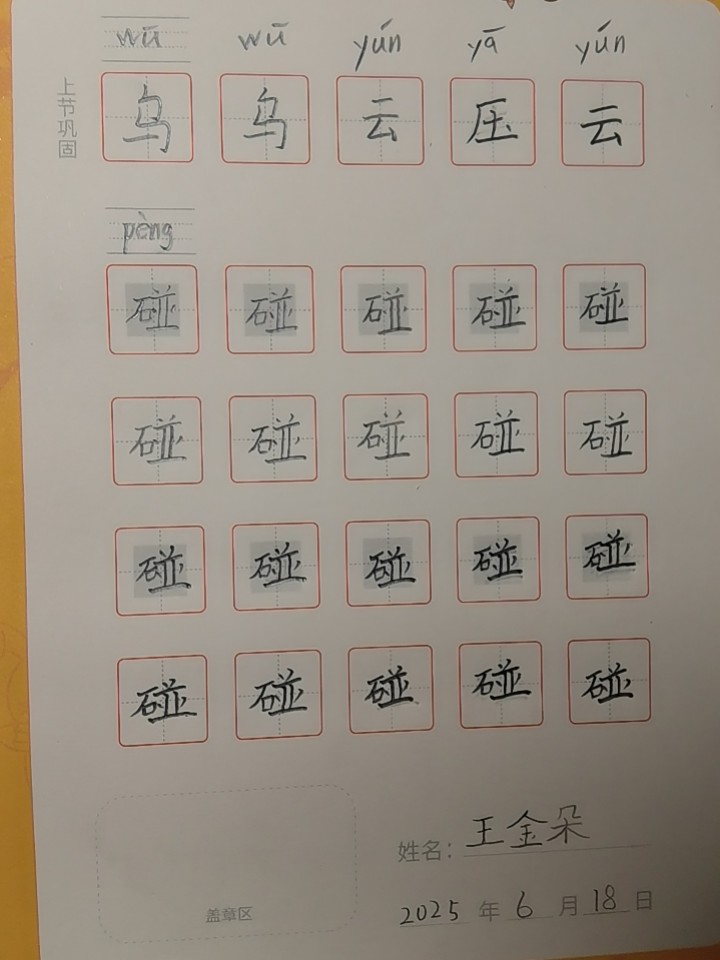 wū wū yún yā yún
上节巩固
乌 乌 云 压 云
pèng
碰 碰 碰 碰 碰
碰 碰 碰 碰 碰
碰 碰 碰 碰 碰
碰 碰 碰 碰 碰
姓名：王金朵
盖章区
2025 年 6 月 18 日